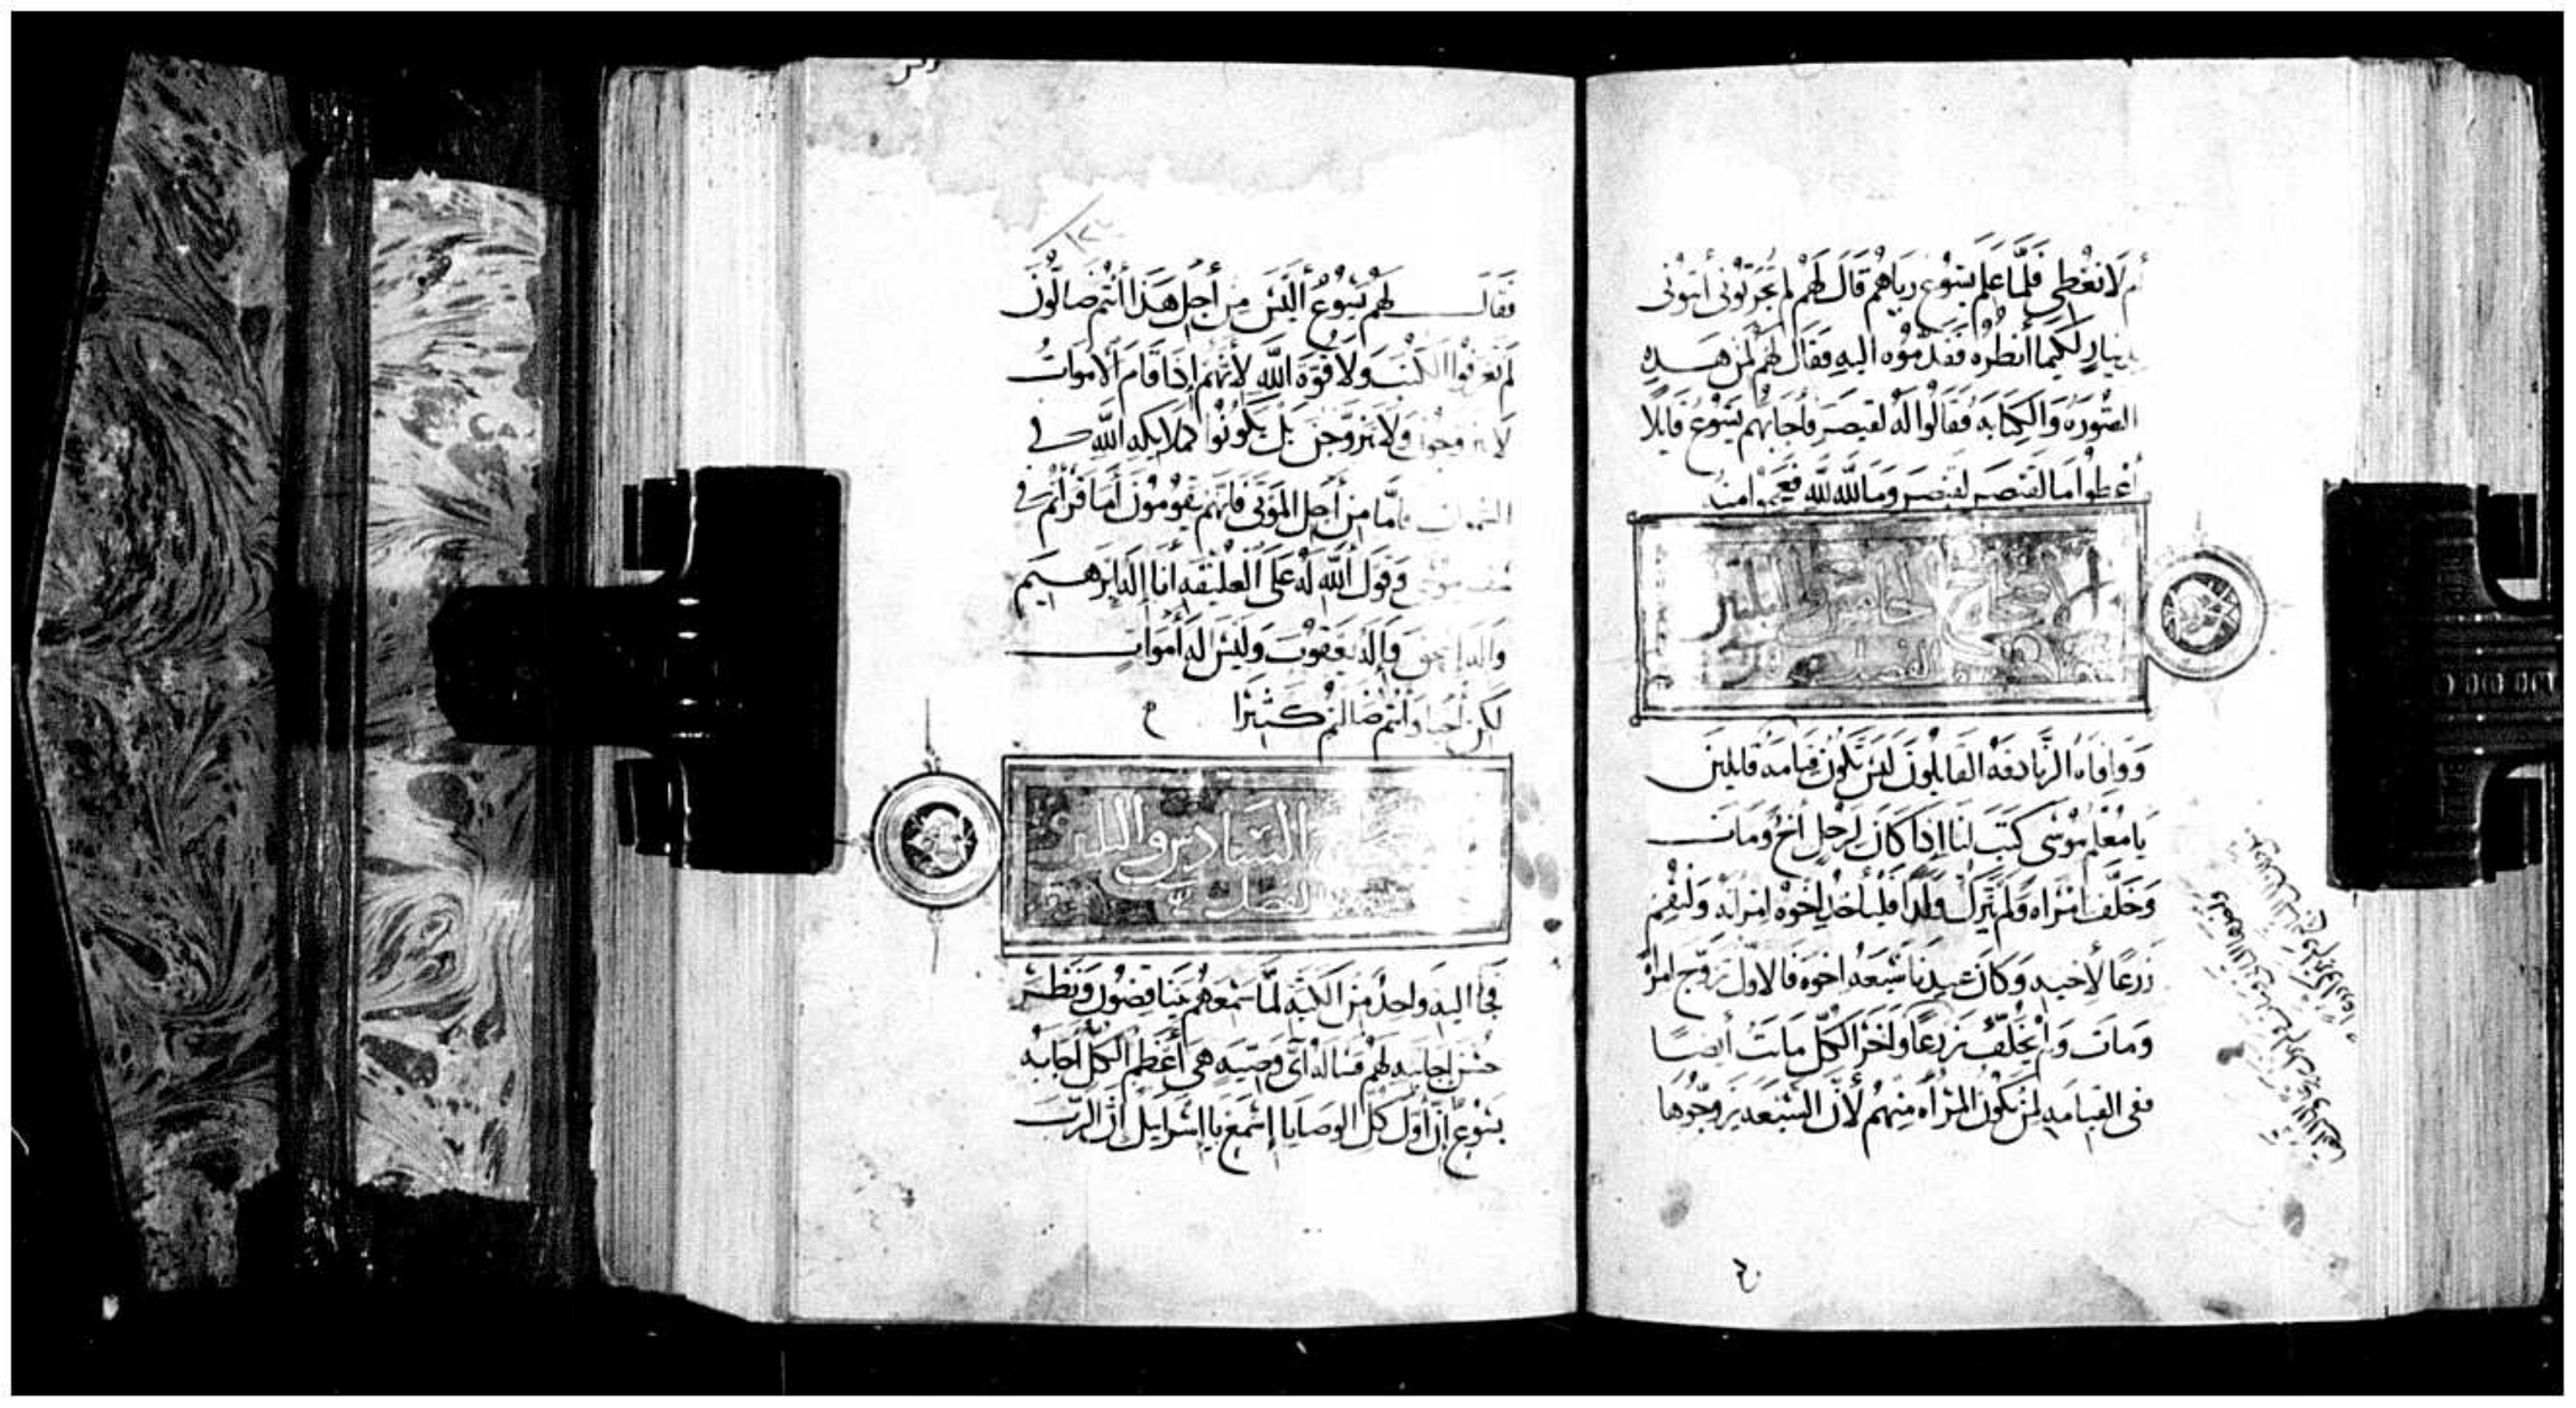 أم لا نعطي فلما علم يسوع رياهم قال لهم لم تجربوني أيتوني
بدينار لكيما أنظره فقدموه اليه فقال لهم لمن هذه
الصورة والكتابه فقالوا له لقيصر فأجابهم يسوع قايلا
أعطوا ما لقيصر لقيصر وما لله لله فعجبوا منه
الاصحاح الخامس والثلثون
الفصل
ووافاه الزنادقه القايلون ليس تكون قيامه قايلين
يا معلم موسى كتب لنا إذا كان لرجل أخ ومات
وخلف امراه ولم يترك ولدا فليأخذ اخوه امراته وليقم
زرعا لأخيه وكان عندنا سبعه اخوه فالاول تزوج امراة
ومات ولم يخلف زرعا واخر الكل ماتت أيضا
ففي القيامه لمن تكون المراه منهم لأن السبعه تزوجوها
فقال لهم يسوع أليس من أجل هذا أنتم ضالون
لم تعرفوا الكتب ولا قوة الله لأنهم إذا قام الأموات
لا يتزوجوا ولا يتزوجن بل يكونوا كملايكه الله في
السموات فاما من أجل الموتى فانهم يقومون أما قرأتم في
سفر موسى وقول الله له على العليقه انا إله إبرهيم
واله إسحق وإله يعقوب وليس إله أموات
لكن أحيا وأنتم ضالتم كثيرا
السادس والثلثون
الفصل
فجأ اليه واحد من الكتبه لما سمعهم يتناقضون ونظر
حسن اجابته لهم فساله أي وصيه هي أعظم الكل أجابه
يسوع إن أول كل الوصايا إسمع يا إسرايل إن الرب